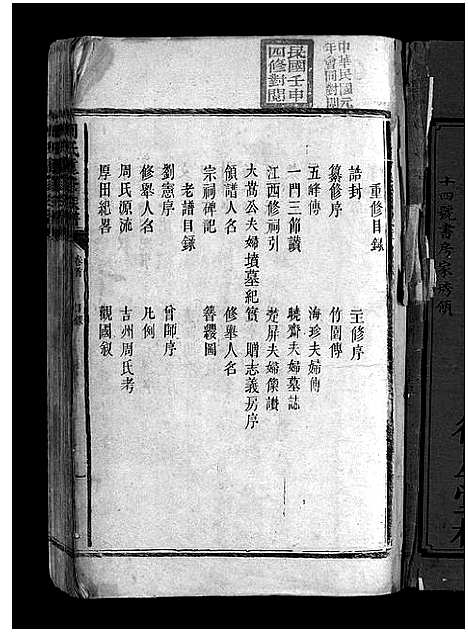 中華民國元
年會同對閱
民國壬申
四修對閱
重修目錄
誥封 主修序
纂修序 竹園傳
五峰傳 海珍夫婦傳
一門三節讚 曉齋夫婦墓誌
江西修祠引 楚屏夫婦像讚
大嵩公夫婦墳墓紀實 贈志義房序
領譜人名 修舉人名
宗祠碑記 簪纓圖
老譜目錄
劉憲序 曾師序
修舉人名 凡例
周氏源流 古州周氏考
厚田紀畧 觀國敘
卷首
目錄
一
十四號書房家琇領